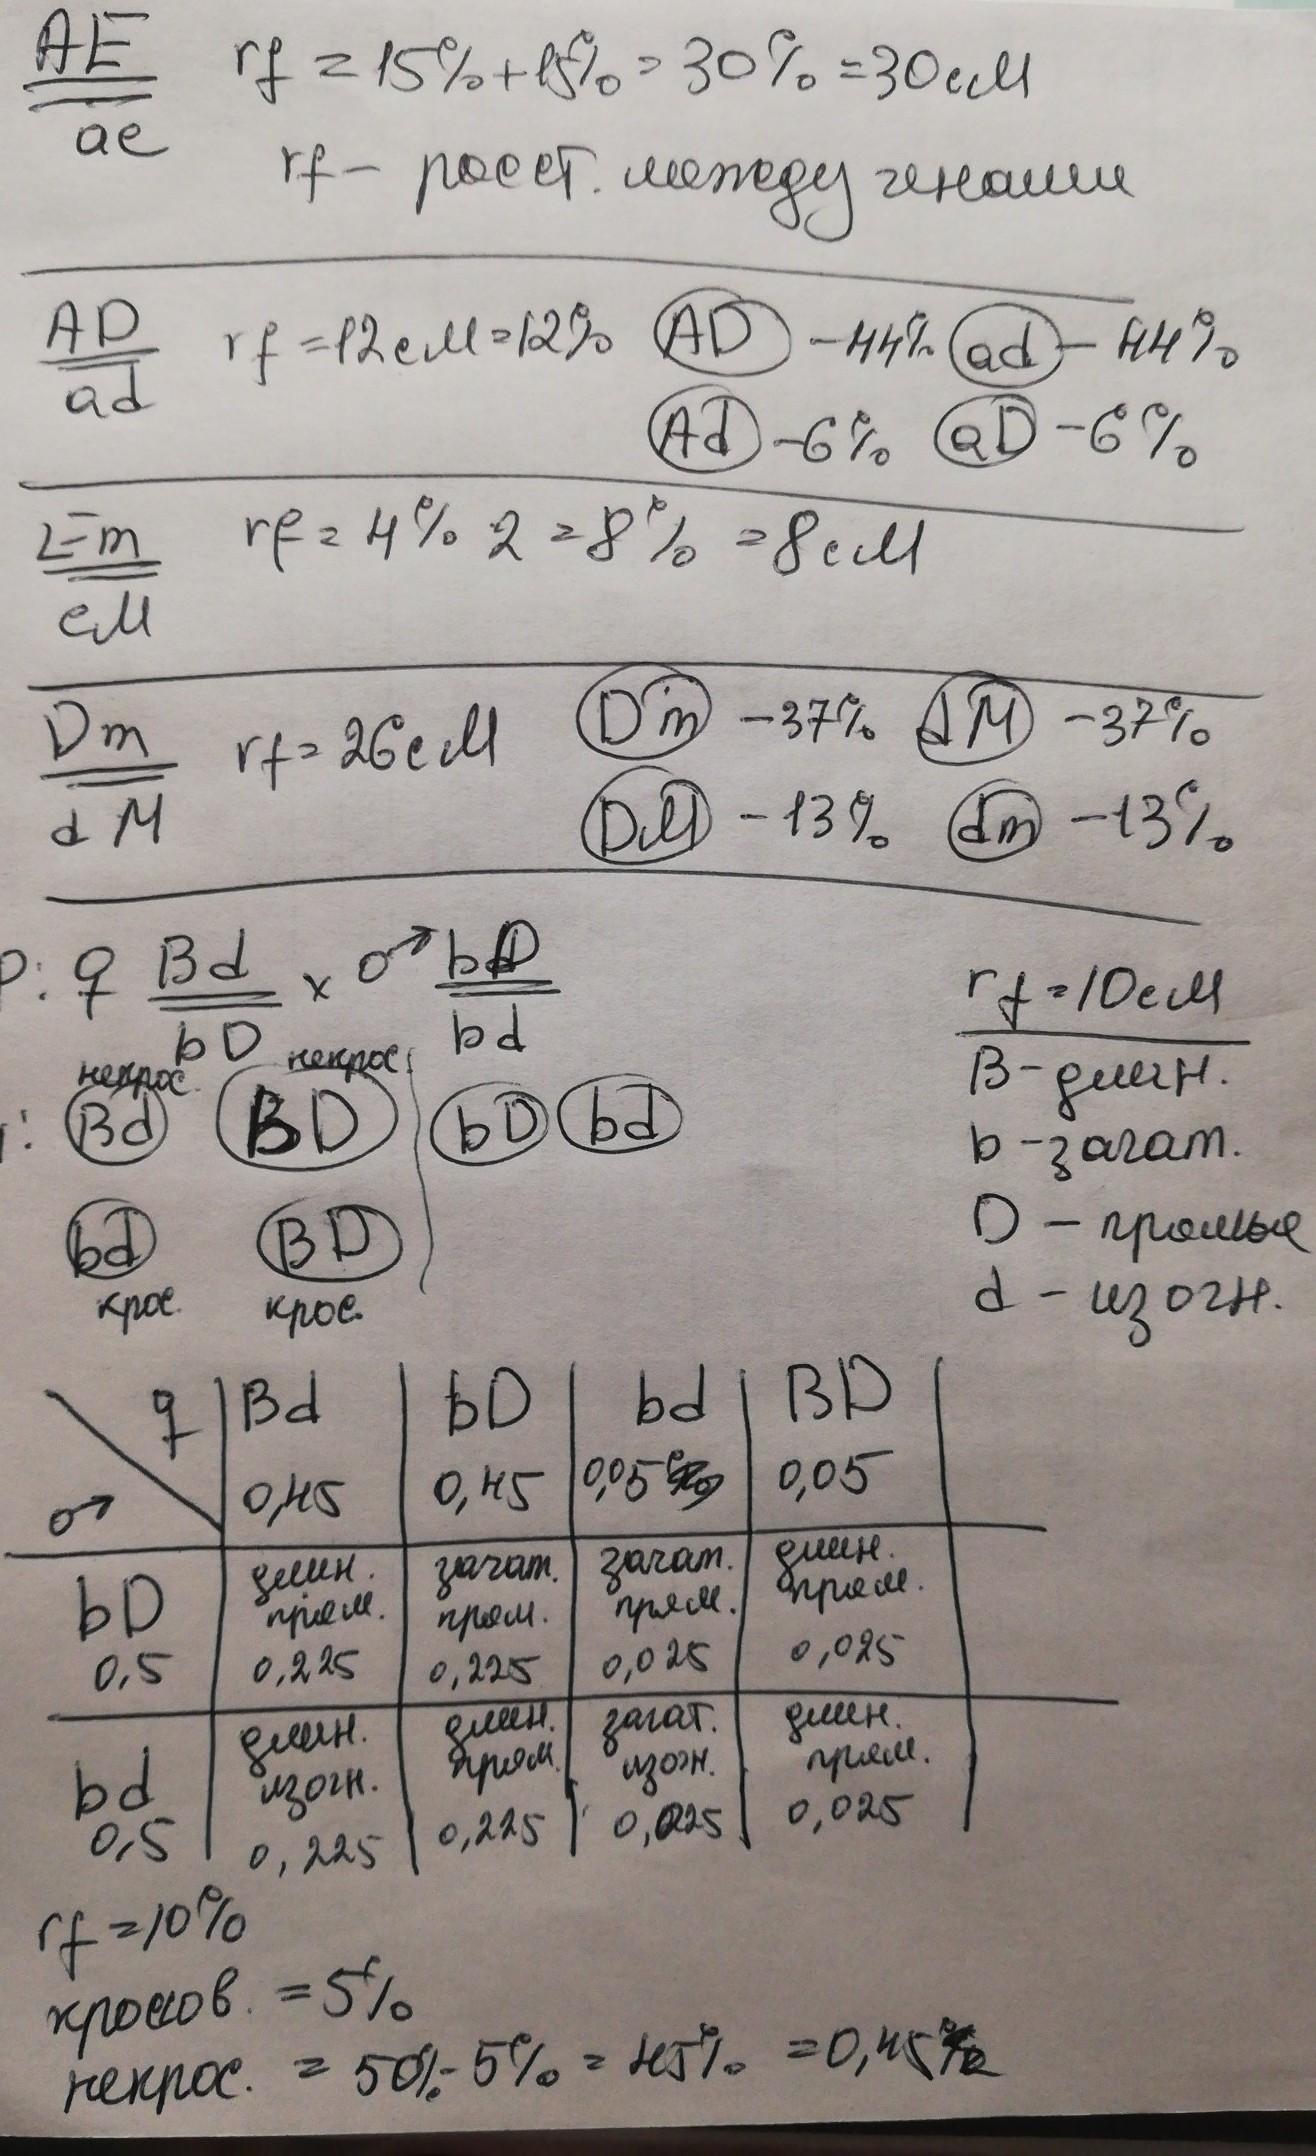 AE
ae
rf = 15% + 15% = 30% = 30 сМ
rf – расст. между генами
AD
ad
rf = 12 сМ = 12%
AD – 44% ad – 44%
Ad – 6% aD – 6%
Em
eM
rf = 4% · 2 = 8% = 8 сМ
Dm
dM
rf = 26 сМ
Dm – 37% dM – 37%
DM – 13% dm – 13%
P: ♀ Bd × ♂ bD
bD bd
rf = 10 сМ
B – длин.
b – зачат.
D – прямые
d – изогн.
некрос. некрос.
Bd BD bD bd
bd BD
крос. крос.
♀ Bd bD bd BD
♂ 0,45 0,45 0,05 0,05
bD длин. зачат. зачат. длин.
прям. прям. прям. прям.
0,5 0,225 0,225 0,025 0,025
bd длин. длин. зачат. длин.
изогн. прям. изогн. прям.
0,5 0,225 0,225 0,025 0,025
rf = 10%
кроссов. = 5%
некрос. = 50% - 5% = 45% = 0,45